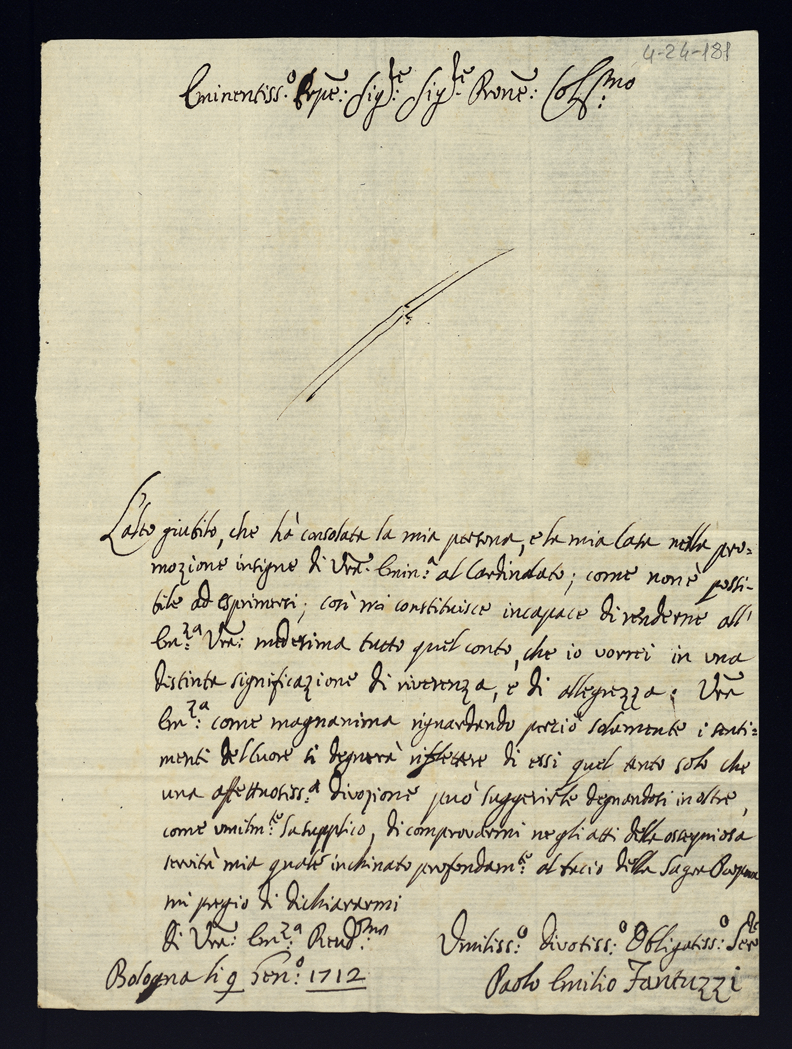 4-24-181
Eminentiss.º Prpe: Sig:re Sig:re Prone: Col:mo
L'alto giubilo, che hà consolata la mia persona, e la mia Casa nella pro=
mozione insigne di Vra: Emin:a al Cardinalato; come non è possi-
bile ad esprimersi; così mi constituisce incapace di renderne all'
Em:za Vra: medesima tutto quel conto, che io vorrei in una
distinta significazione di riverenza, e di allegrezza; Vra
Em:za: come magnanima riguardando perciò solamente i senti=
menti del Cuore si degnerà riflettere di essi quel tanto solo che
una affettuotiss:a divozione può suggerirle degnandosi inoltre,
come umilm:te la supplico, di comprovarmi negli atti della ossequiosa
servitù mia quale inchinato profondam:te al bacio della Sagra Porpora
mi pregio di dichiararmi
di Vra: Em:za Revd:ma
Umiliss:º Divotiss:º Obligatiss:º Ser:re
Bologna li 9 Gen:º 1712
Paolo Emilio Fantuzzi